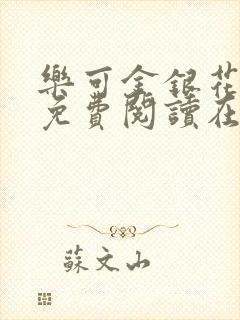 樂可金銀花
免費閱讀在
蘇文山